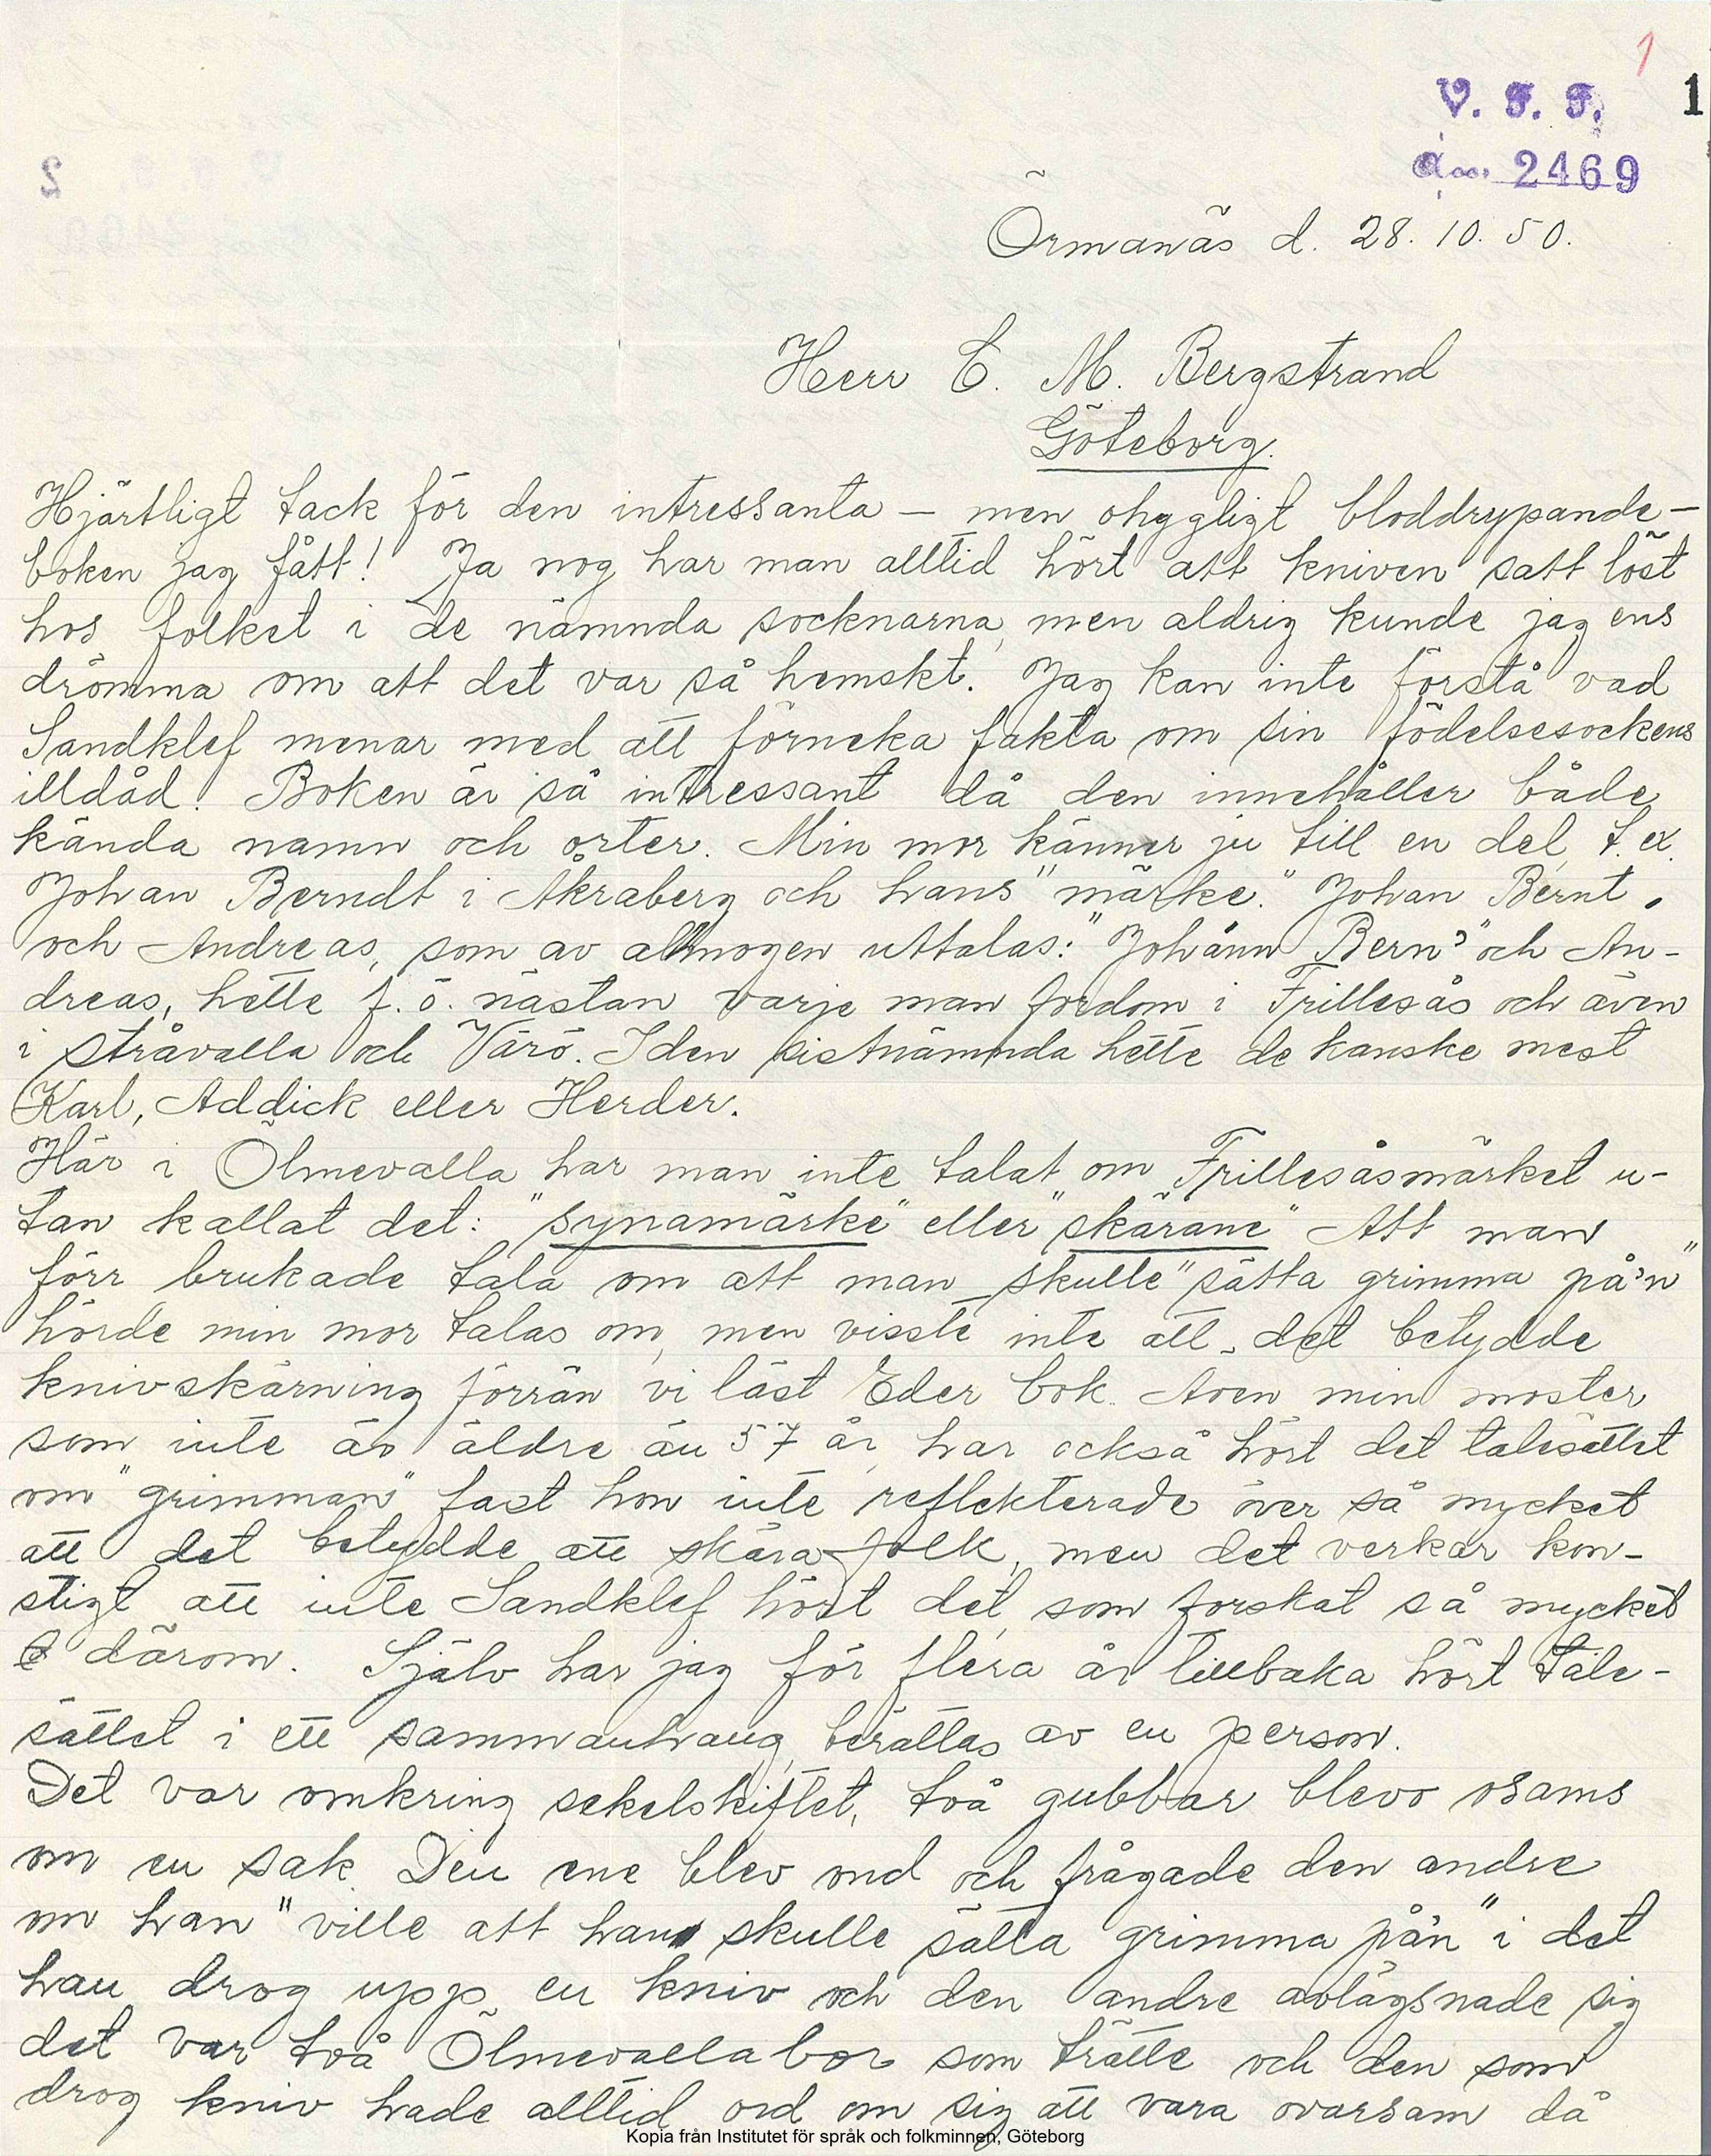 1
V. F. F.
1
Acc. 2469
2
Örmanäs d. 28. 10. 50.
Herr C. M. Bergstrand
Göteborg.
Hjärtligt tack för den intressanta – men ohyggligt bloddrypande –
boken jag fått! Ja nog har man alltid hört att kniven satt löst
hos folket i de nämnda socknarna, men aldrig kunde jag ens
drömma om att det var så hemskt. Jag kan inte förstå vad
Sandklef menar med att förneka fakta om sin födelsesockens
illdåd! Boken är så intressant då den innehåller både
kända namn och orter. Min mor känner ju till en del, t. ex.
Johan Berndt i Åkraberg och hans "märke." Johan Bernt,
och Andreas, som av allmogen uttalas: "Johånn Bern'" och An-
dreas, hette f. ö. nästan varje man fordom i Frillesås och även
i Stråvalla och Värö. I den sistnämnda hette de kanske mest
Karl, Addick eller Herder.
Här i Ölmevalla har man inte talat om Frillesåsmärket u-
tan kallat det: "synamärke" eller "skärane" Att man
förr brukade tala om att man skulle "sätta grimma på'n"
hörde min mor talas om, men visste inte att det betydde
knivskärning förrän vi läst Eder bok. Även min moster
som inte är äldre än 57 år, har också hört det talesättet
om "grimman" fast hon inte reflekterade över så mycket
att det betydde att skära folk, men det verkar kon-
stigt att inte Sandklef hört det, som forskat så mycket
därom. Själv har jag för flera år tillbaka hört tale-
sättet i ett sammanhang, berättas av en person.
Det var omkring sekelskiftet, två gubbar blevo osams
om en sak. Den ene blev ond och frågade den andre
om han "ville att han skulle sätta grimma på'n" i det
han drog upp en kniv och den andre avlägsnade sig
det var två Ölmevallabor som trätte och den som
drog kniv hade alltid ord om sig att vara ovarsam då
Kopia från Institutet för språk och folkminnen, Göteborg